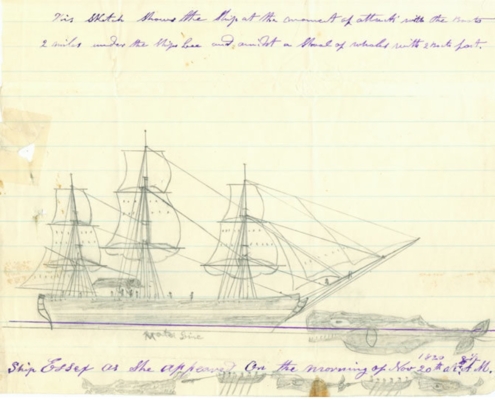 This Sketch Shows the Ship at the moment of attack with the Boats
2 miles under the Ships Lee and amidst a Shoal of whales with 2 fast.
Water Line
Ship Essex as She appeared On the morning of Nov 20th 1820 A.M.